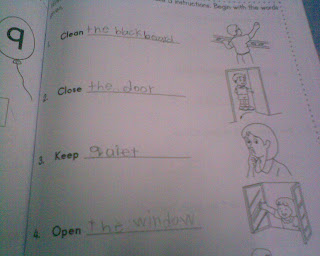 instructions. Begin with the words
given.
9
1. Clean the backboard
2. Close the door
3. Keep quiet
4. Open the window